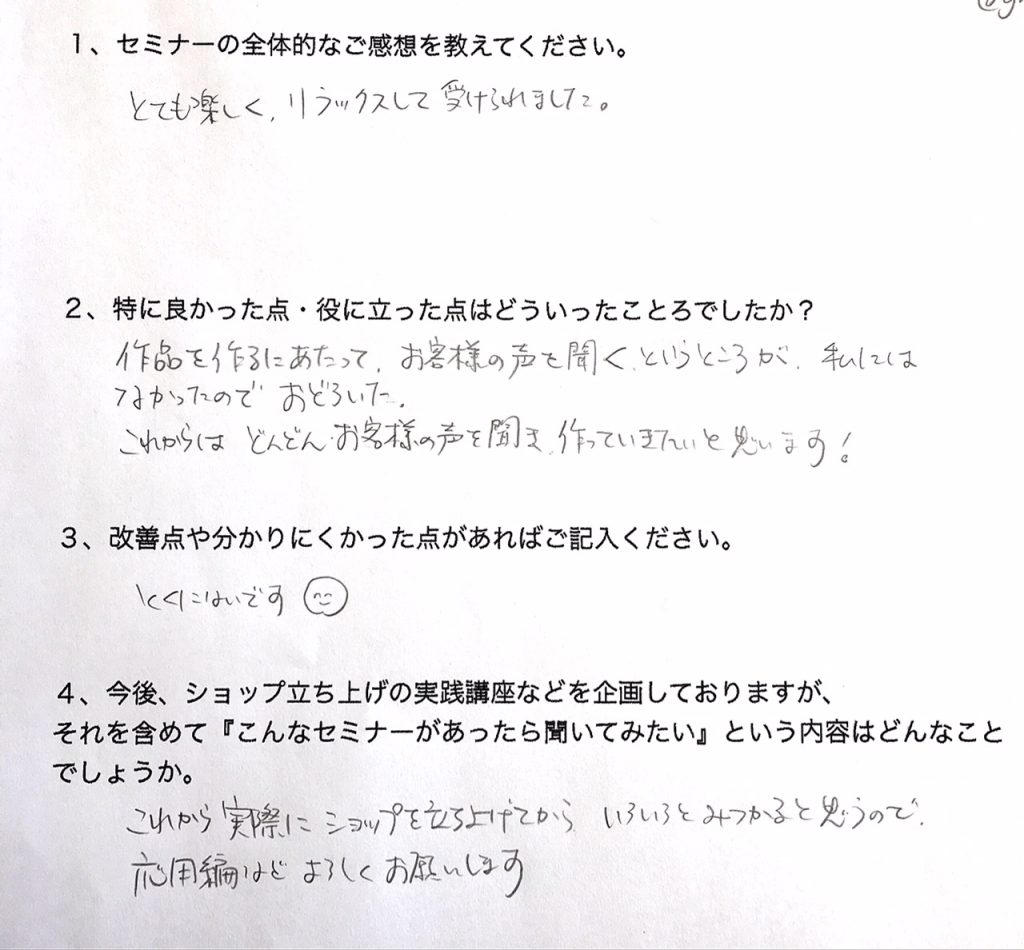 1、セミナーの全体的なご感想を教えてください。
とても楽しく、リラックスして受けられました。
2、特に良かった点・役に立った点はどういったことろでしたか？
作品を作るにあたって、お客様の声を聞く、というところが、私には
なかったので おどろいた。
これからは どんどん お客様の声を聞き、作っていきたいと思います！
3、改善点や分かりにくかった点があればご記入ください。
とくにはないです
4、今後、ショップ立ち上げの実践講座などを企画しておりますが、
それを含めて『こんなセミナーがあったら聞いてみたい』という内容はどんなこと
でしょうか。
これから実際に ショップを立ち上げてから いろいろと みつかると思うので、
応用編など よろしくお願いします